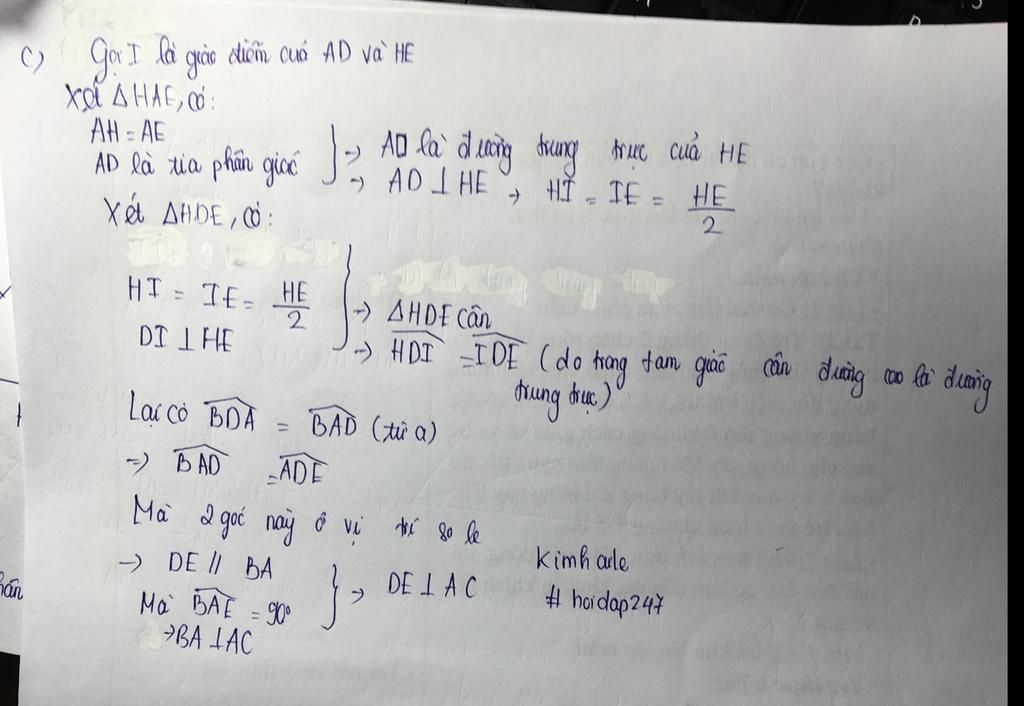 c) Gọi I là giao điểm của AD và HE
Xét ΔHAE, có:
AH = AE
AD là tia phân giác } → AD là đường trung trực của HE
→ AD ⊥ HE → HI = IE = HE/2
Xét ΔHDE, có:
HI = IE = HE/2
DI ⊥ HE } → ΔHDE cân
→ \widehat{HDI} = \widehat{IDE} (do trong tam giác cân đường cao là đường
trung trực)
Lại có \widehat{BDA} = \widehat{BAD} (từ a)
=> \widehat{BAD} = \widehat{ADE}
Mà 2 góc này ở vị trí so le
→ DE // BA
Mà \widehat{BAE} = 90° } → DE ⊥ AC
→ BA ⊥ AC
Kimharle
# hoidap247